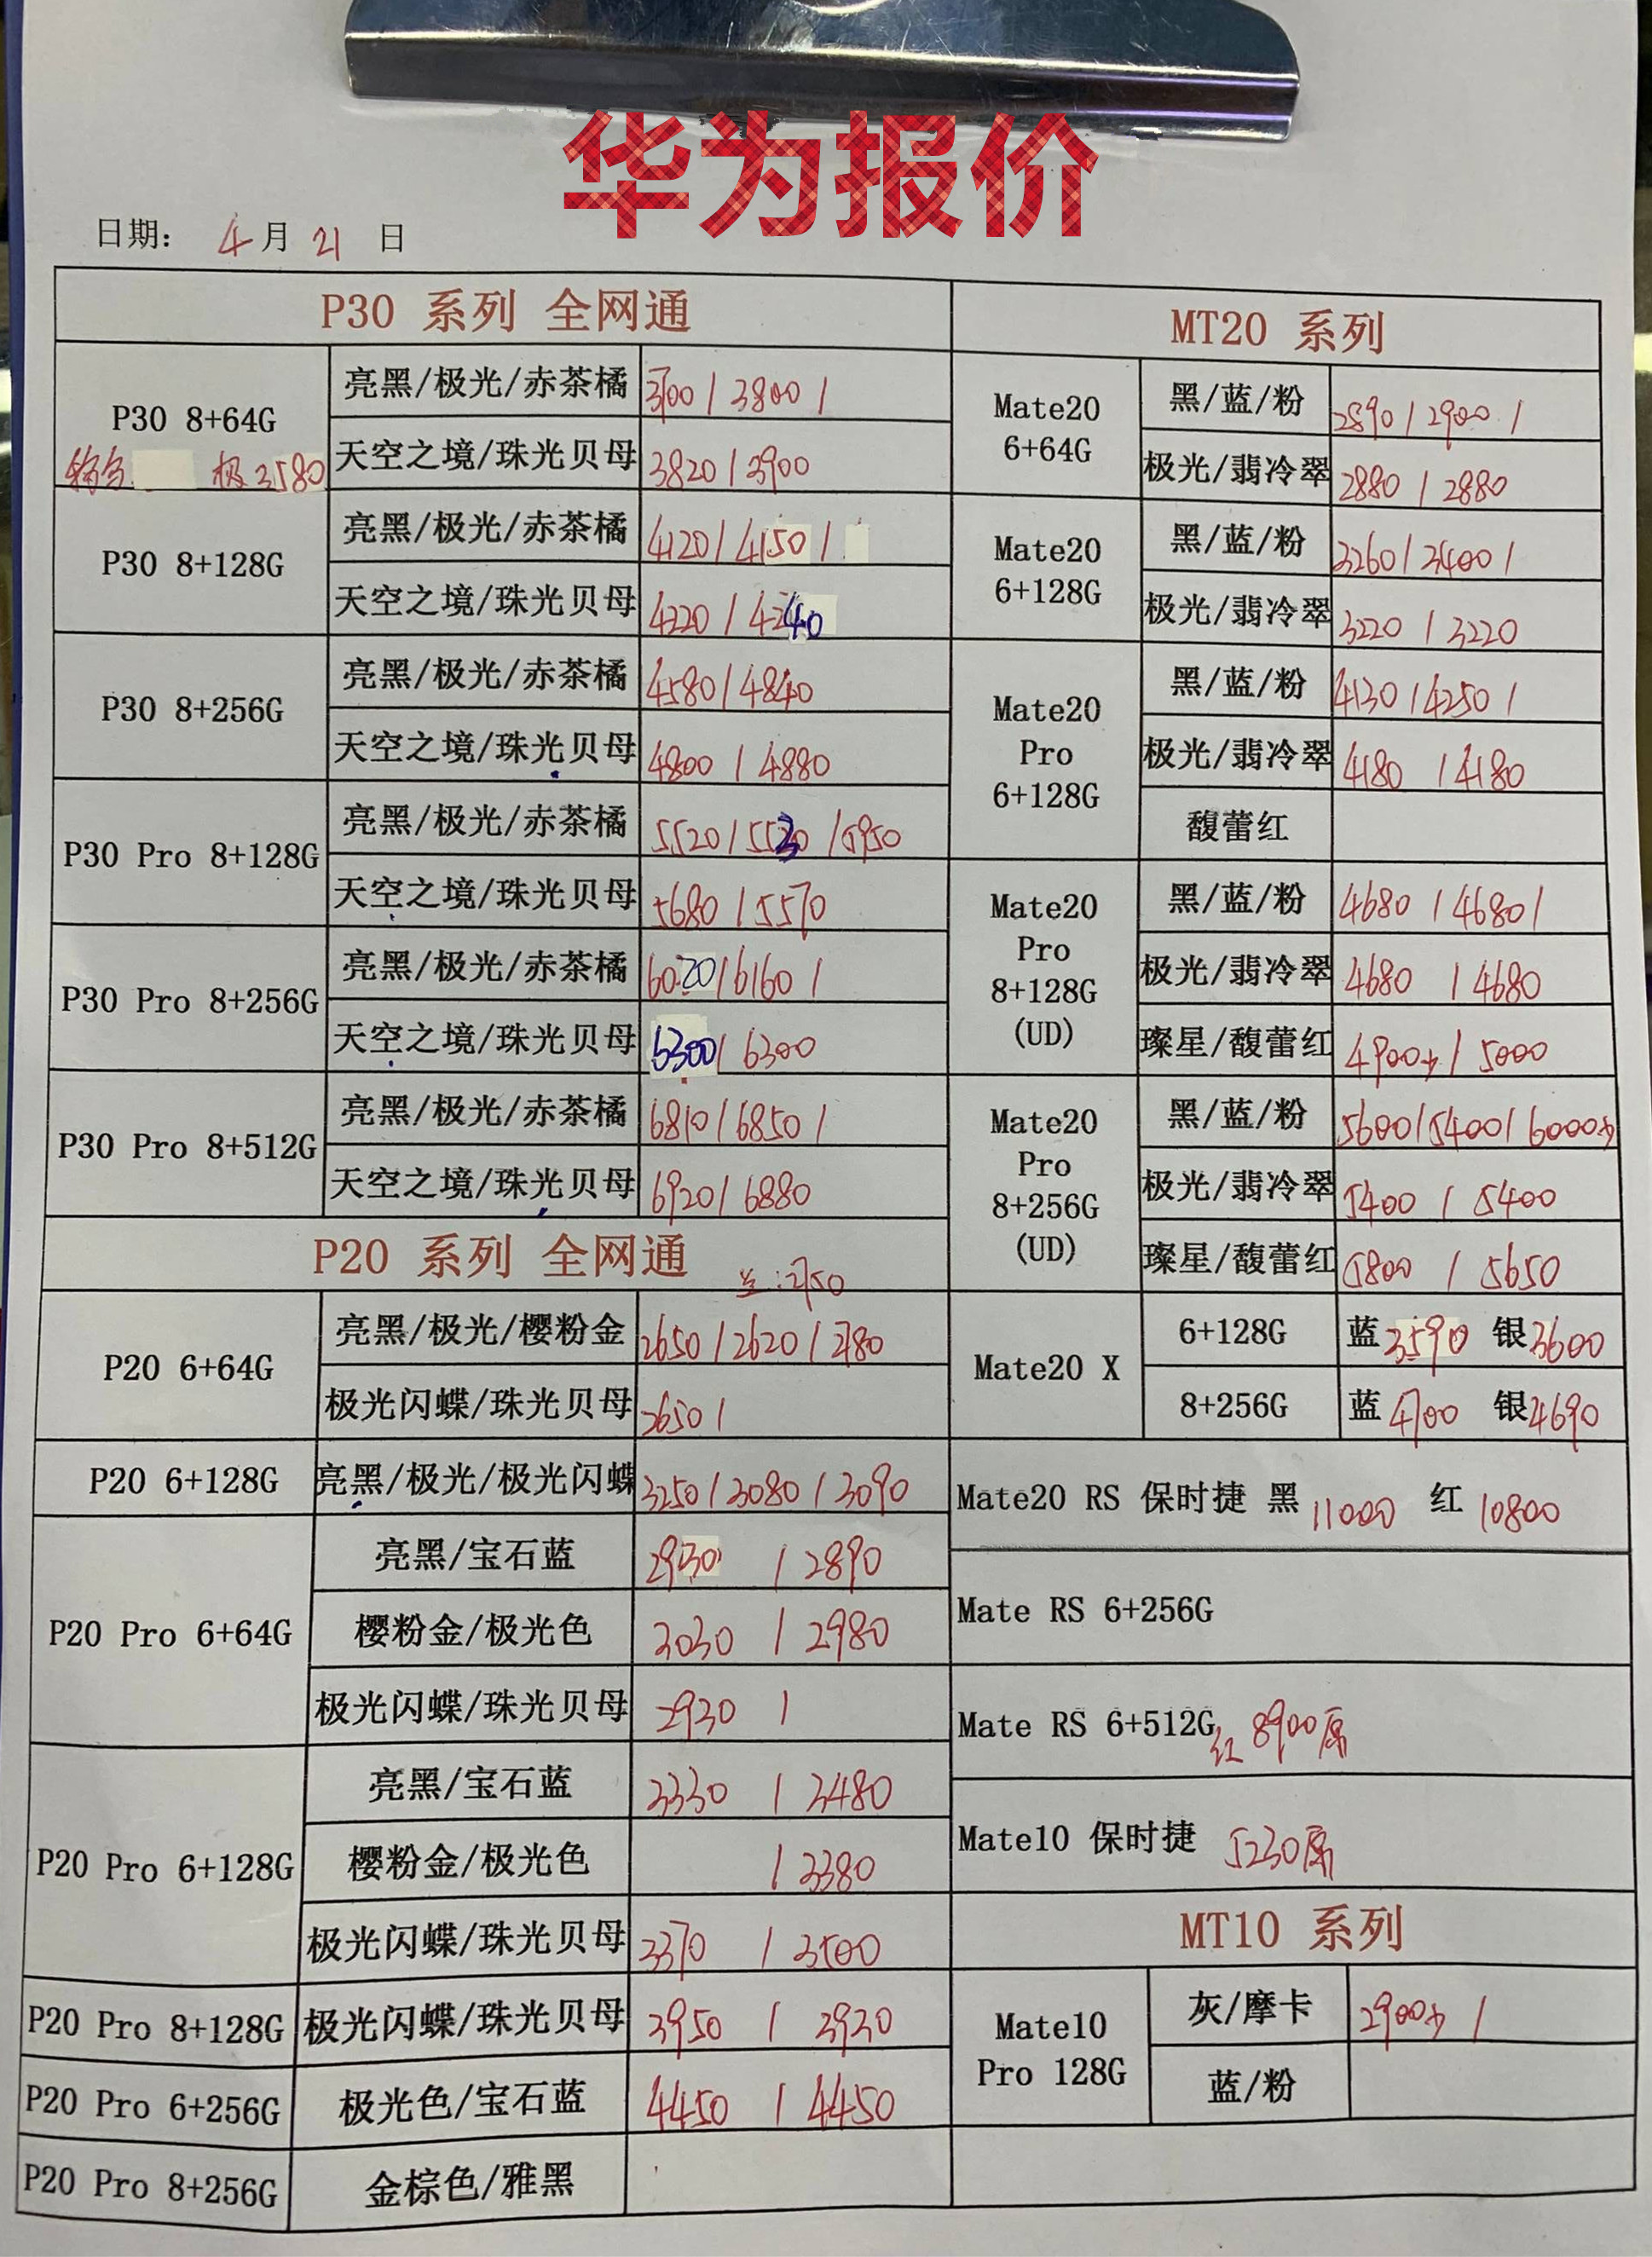 华为报价
日期： 4月 21 日
P30 系列 全网通
P30 8+64G
极 3580
亮黑/极光/赤茶橘 3700 / 3800 /
天空之境/珠光贝母 3820 / 3900
P30 8+128G
亮黑/极光/赤茶橘 4120 / 4150 /
天空之境/珠光贝母 4220 / 4240
P30 8+256G
亮黑/极光/赤茶橘 4580 / 4840
天空之境/珠光贝母 4800 / 4880
P30 Pro 8+128G
亮黑/极光/赤茶橘 5520 / 5530 / 5950
天空之境/珠光贝母 5680 / 5570
P30 Pro 8+256G
亮黑/极光/赤茶橘 6020 / 6160 /
天空之境/珠光贝母 6300 / 6300
P30 Pro 8+512G
亮黑/极光/赤茶橘 6810 / 6850 /
天空之境/珠光贝母 6920 / 6880
P20 系列 全网通
P20 6+64G
亮黑/极光/樱粉金 2650 / 2620 /
极光闪蝶/珠光贝母 2650 /
P20 6+128G
亮黑/极光/极光闪蝶 3250 / 3080 / 3090
P20 Pro 6+64G
亮黑/宝石蓝 2930 / 2890
樱粉金/极光色 3030 / 2980
极光闪蝶/珠光贝母 2930 /
P20 Pro 6+128G
亮黑/宝石蓝 3330 / 3480
樱粉金/极光色 / 3380
极光闪蝶/珠光贝母 3370 / 3500
P20 Pro 8+128G 极光闪蝶/珠光贝母 3950 / 3930
P20 Pro 6+256G 极光色/宝石蓝 4450 / 4450
P20 Pro 8+256G 金棕色/雅黑
MT20 系列
Mate20
6+64G
黑/蓝/粉 2890 / 2900 /
极光/翡冷翠 2880 / 2880
Mate20
6+128G
黑/蓝/粉 3260 / 3400 /
极光/翡冷翠 3220 / 3220
Mate20
Pro
6+128G
黑/蓝/粉 4130 / 4250 /
极光/翡冷翠 4180 / 4180
馥蕾红
Mate20
Pro
8+128G
(UD)
黑/蓝/粉 4680 / 4680 /
极光/翡冷翠 4680 / 4680
璨星/馥蕾红 4900少 / 5000
Mate20
Pro
8+256G
(UD)
黑/蓝/粉 5600 / 5400 / 6000少
极光/翡冷翠 5400 / 5400
璨星/馥蕾红 5800 / 5650
Mate20 X
6+128G 蓝 3590 银 3600
8+256G 蓝 4700 银 4690
Mate20 RS 保时捷 黑 11000 红 10800
Mate RS 6+256G
Mate RS 6+512G 红 8900原
Mate10 保时捷 5230原
MT10 系列
Mate10
Pro 128G
灰/摩卡 2900少 /
蓝/粉